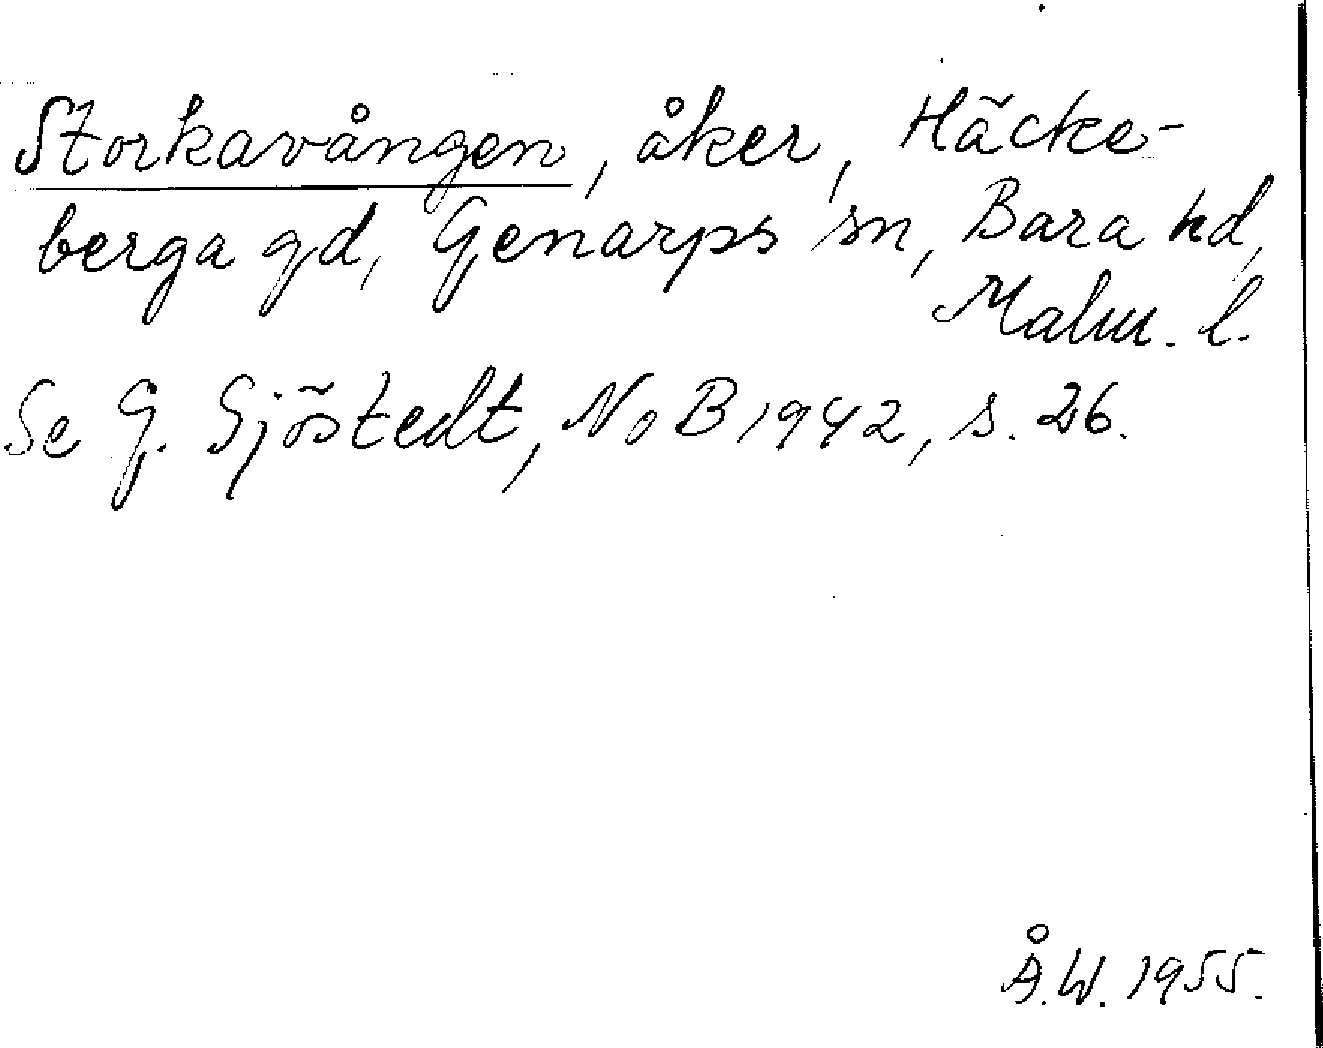 Storkavången, åker, Häcke-
berga gd, Genarps sn, Bara hd,
Malm. l.
Se G. Sjöstedt, NoB 1942, s. 26.
Å.W. 1955.